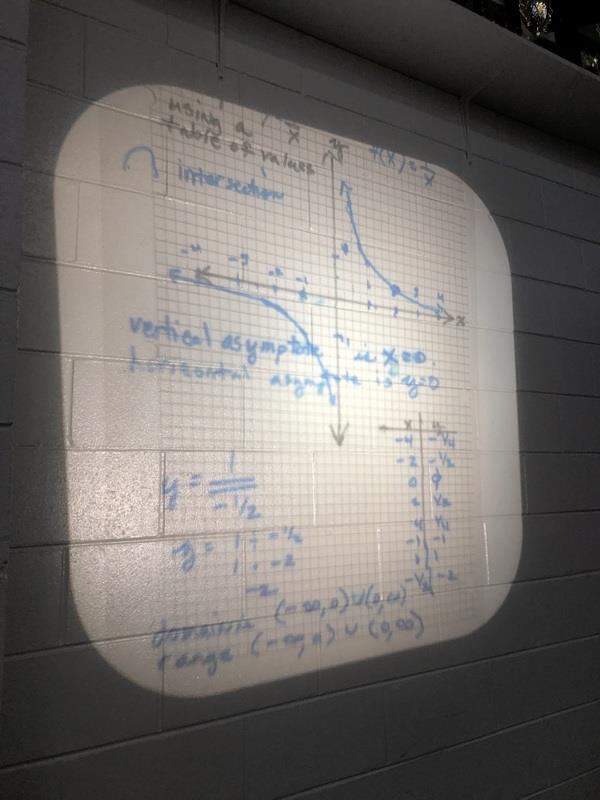 using a
table of values
1/x
y
f(x) = 1/x
∩ intersection
-4 -3 -2 -1
x
vertical asymptote is x=0
horizontal asymptote is y=0
x y
-4 -1/4
-2 -1/2
0 φ
2 1/2
4 1/4
-1 -1
1 1
-1/2 -2
y = 1/(-1/2)
y = 1 ÷ -1/2
1 · -2
-2
domain (-∞,0) ∪ (0,∞)
range (-∞,0) ∪ (0,∞)